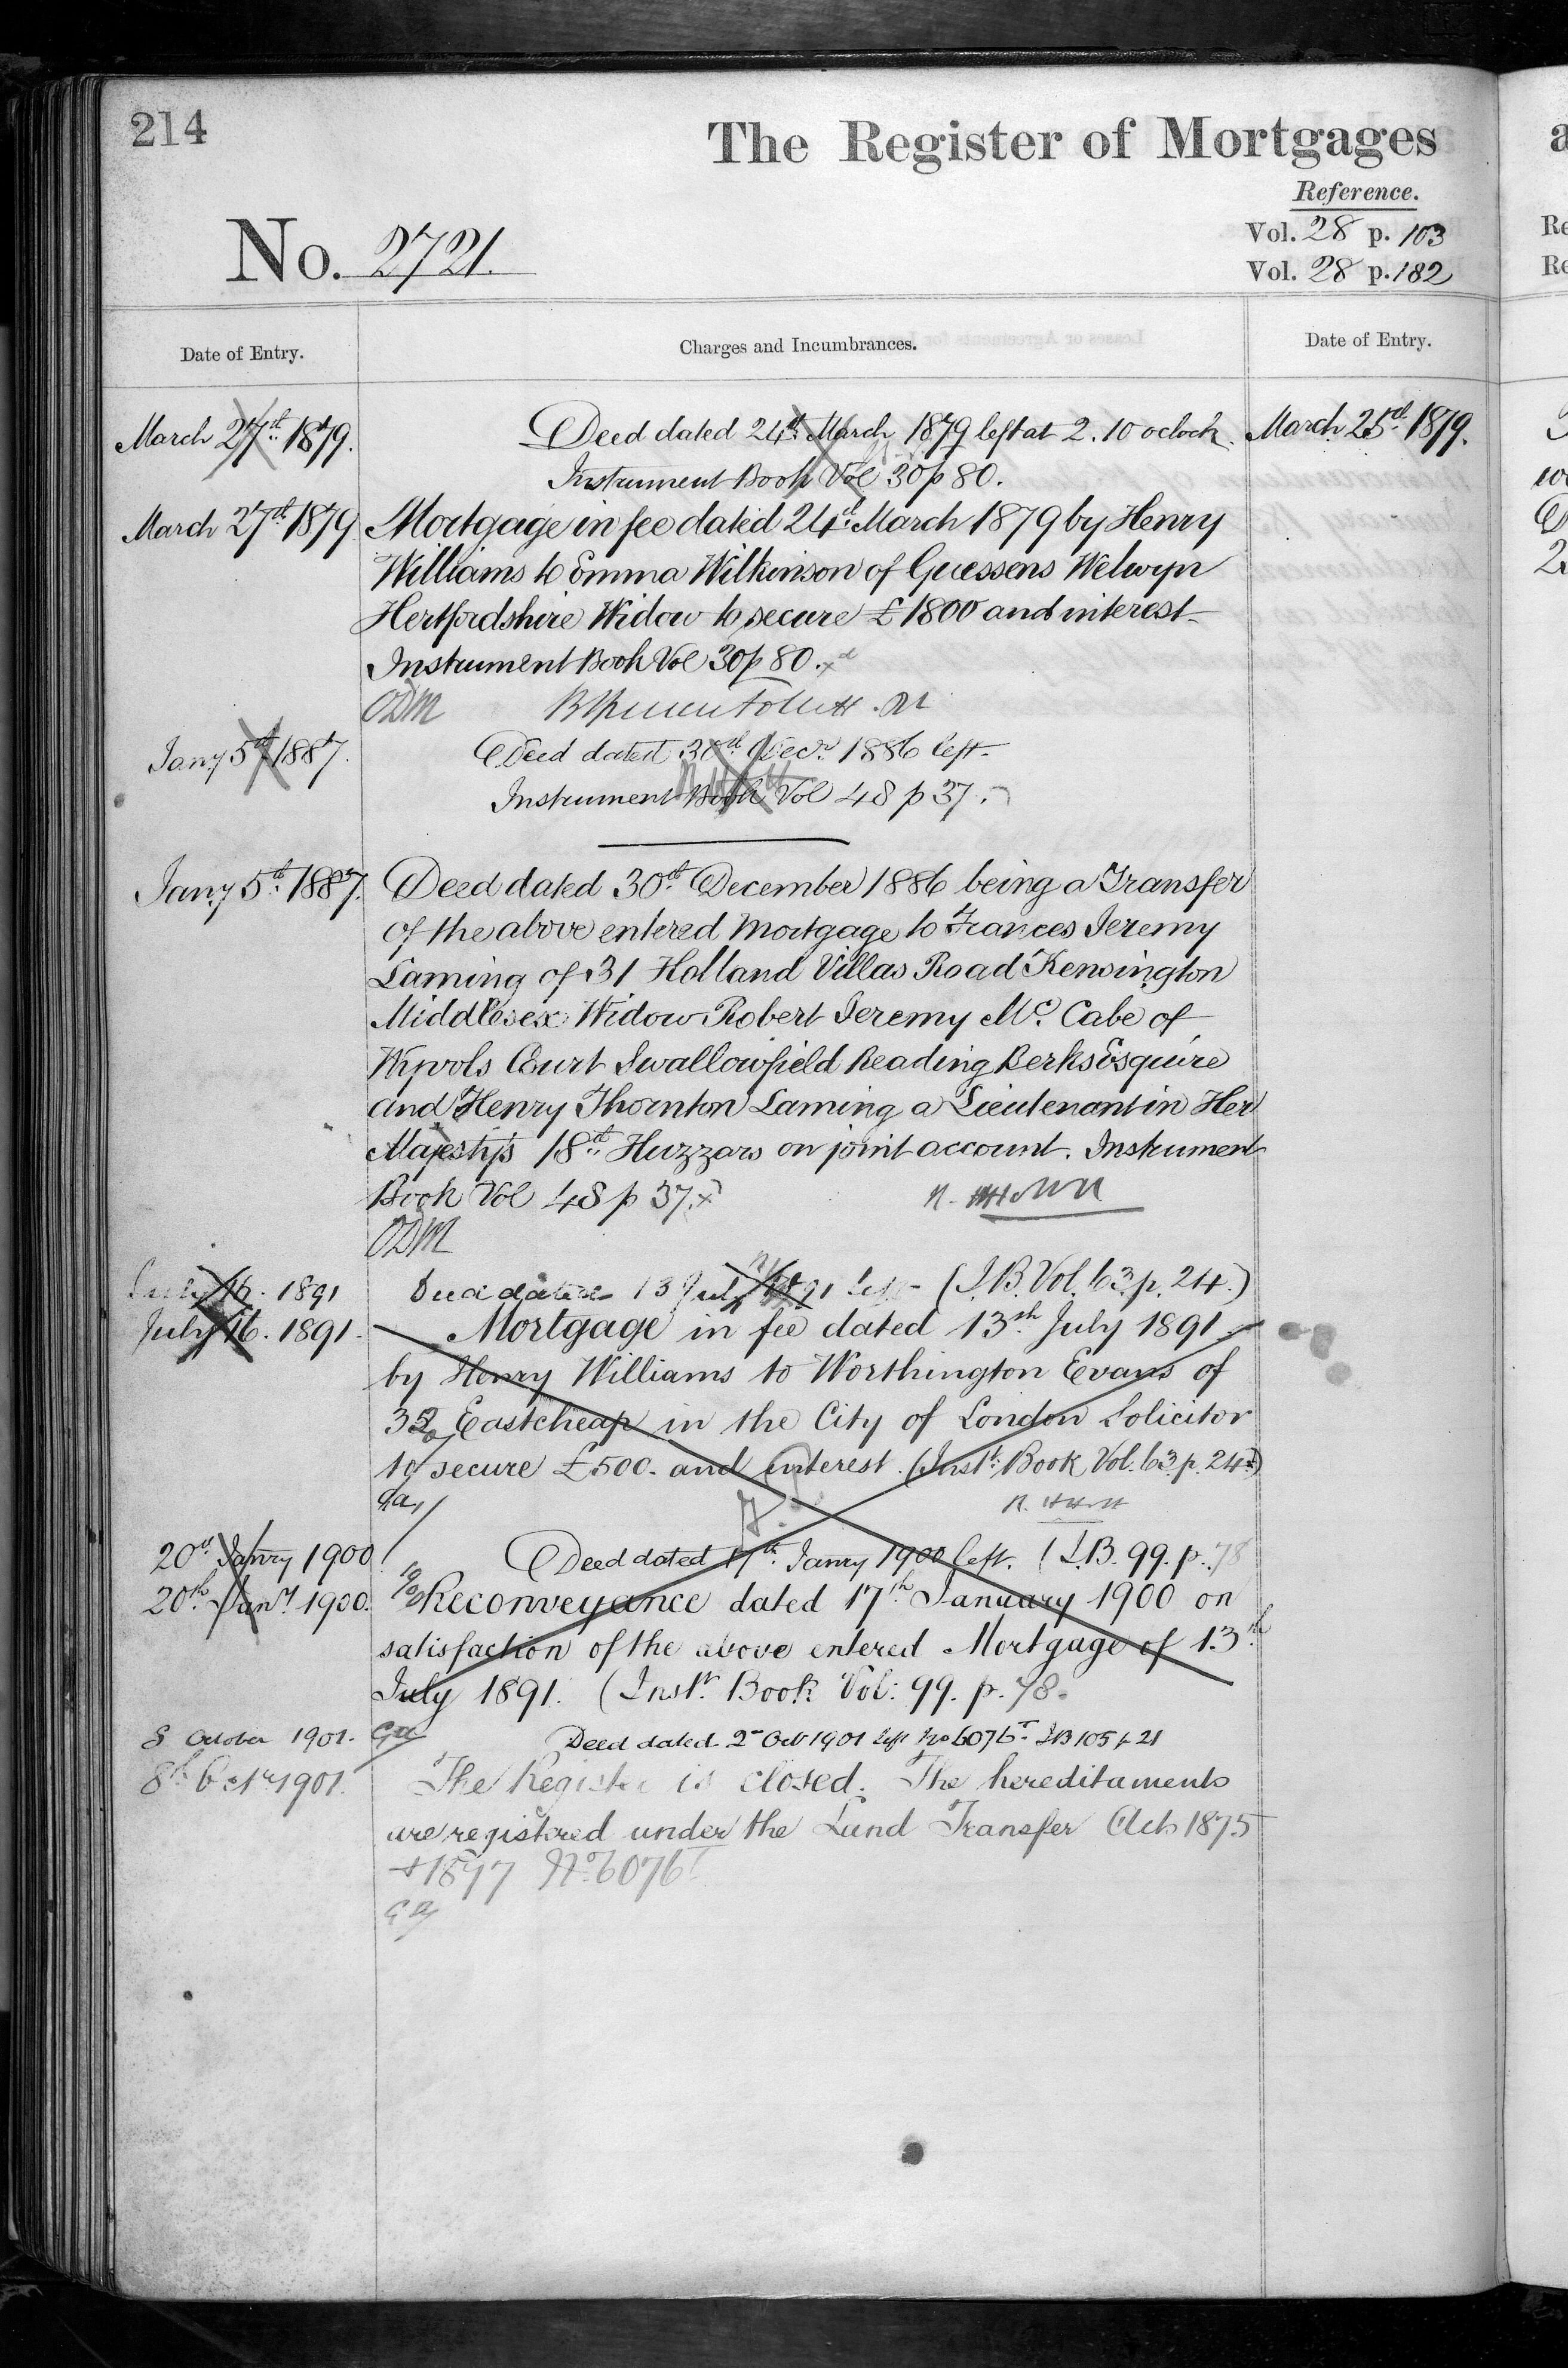 214
The Register of Mortgages
Reference.
No. 2721.
Vol. 28 p. 103
Vol. 28 p. 182
Date of Entry.
Charges and Incumbrances.
Date of Entry.
March 27th 1879.
Deed dated 24th March 1879 left at 2.10 oclock.
March 25th 1879.
Instrument Book Vol 30 p 80.
March 27th 1879
Mortgage in fee dated 24th March 1879 by Henry
Williams to Emma Wilkinson of Guessens Welwyn
Hertfordshire Widow to secure £1800 and interest
Instrument Book Vol 30 p 80.
ODM
Jany 5th 1887.
Deed dated 30th Decr 1886 left
Instrument Book Vol 48 p 37.
Jany 5th 1887.
Deed dated 30th December 1886 being a Transfer
of the above entered Mortgage to Frances Jeremy
Laming of 31 Holland Villas Road Kensington
Middlesex Widow Robert Jeremy Mc Cabe of
Court Swallowfield Reading Berks Esquire
and Henry Thornton Laming a Lieutenant in Her
Majesty's 18th Huzzars on joint account. Instrument
Book Vol 48 p 37.
ODM
July 16. 1891
Deed dated 13 July 1891 left (I.B. Vol. 63. p. 24.)
July 16. 1891.
Mortgage in fee dated 13th July 1891
by Henry Williams to Worthington Evans of
32 Eastcheap in the City of London Solicitor
to secure £500. and interest. (Instt Book Vol. 63. p. 24)
20th Janry 1900
Deed dated 17th Janry 1900 left. (I.B. 99. p. 78
20th Jany 1900.
Reconveyance dated 17th January 1900 on
satisfaction of the above entered Mortgage of 13th
July 1891. (Instt Book Vol: 99. p. 78.
8 October 1901.
Deed dated 2nd Oct 1901 left No 6076T IB 105 p 21
8th Octr 1901.
The Register is closed. The hereditaments
are registered under the Land Transfer Acts 1875
+ 1897 No 6076T